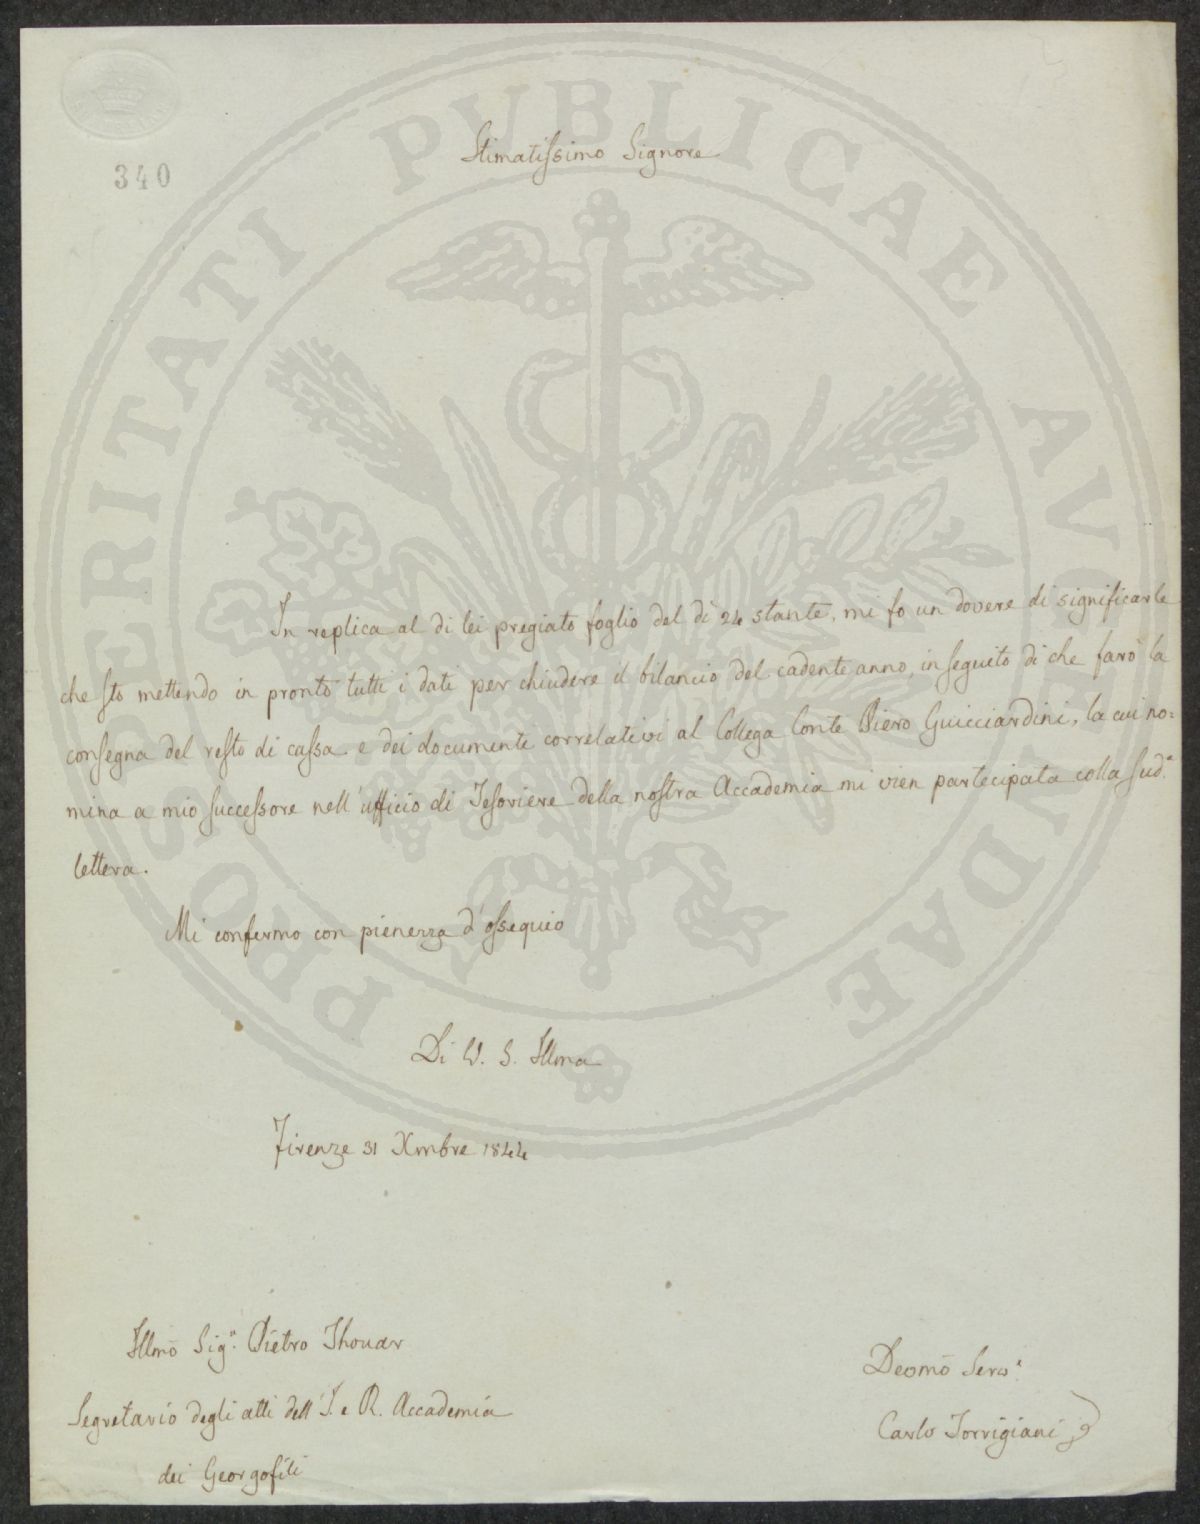 340
Stimatissimo Signore
In replica al di lei pregiato foglio del dì 24 stante, mi fo un dovere di significarle
che sto mettendo in pronto tutti i dati per chiudere il bilancio del cadente anno, in seguito di che farò la
consegna del resto di cassa e dei documenti correlativi al Collega Conte Piero Guicciardini, la cui no=
mina a mio successore nell'ufficio di Tesoriere della nostra Accademia mi vien partecipata colla sud.ª
lettera.
Mi confermo con pienezza d'ossequio
Di V. S. Illma
Firenze 31 Xmbre 1844
Illmõ Sig.r Pietro Thouar
Segretario degli atti dell'I. e R. Accademia
dei Georgofili
Devmõ Serv.e
Carlo Torrigiani
PROSPERITATI PUBLICAE AVGENDAE